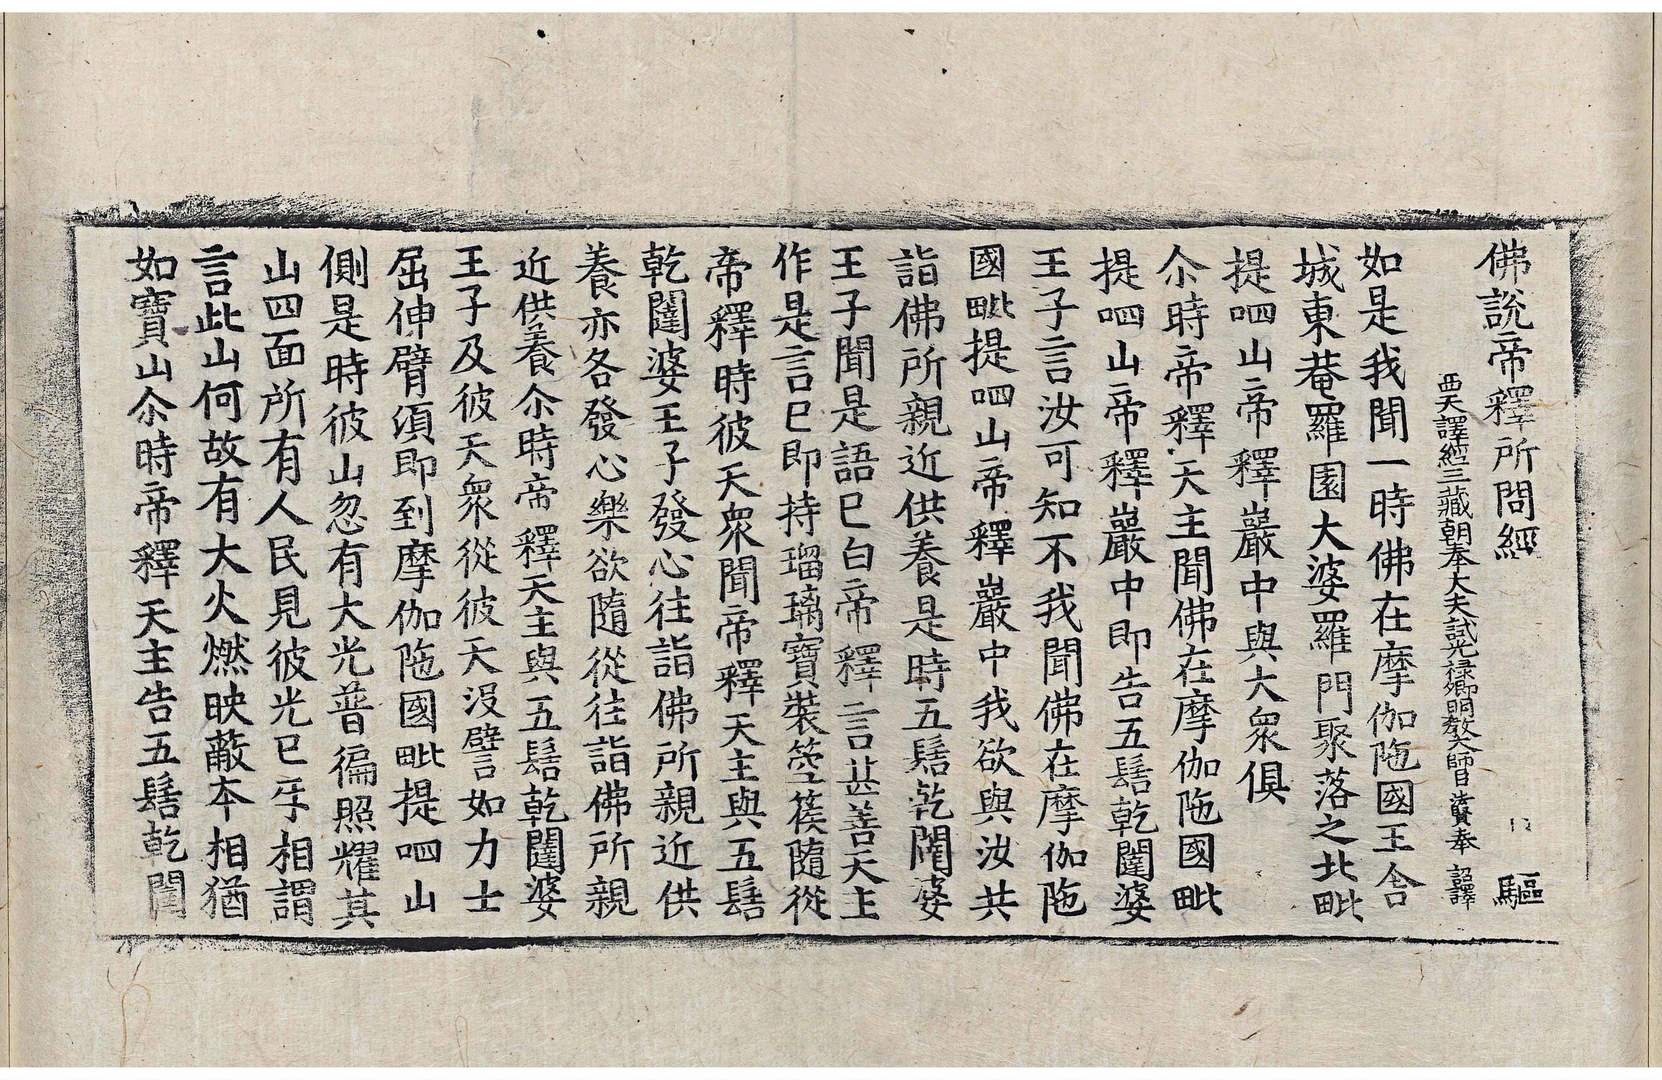 佛說帝釋所問經 驅
西天譯經三藏朝奉大夫試光祿卿明教大師臣法賢奉 詔譯
如是我聞一時佛在摩伽陁國王舎
城東菴羅園大婆羅門聚落之北毗
提呬山帝釋巖中與大衆俱
尒時帝釋天主聞佛在摩伽陁國毗
提呬山帝釋巖中即告五髻乾闥婆
王子言汝可知不我聞佛在摩伽陁
國毗提呬山帝釋巖中我欲與汝共
詣佛所親近供養是時五髻乾闥婆
王子聞是語已白帝釋言甚善天主
作是言已即持瑠璃寶裝箜篌隨從
帝釋時彼天衆聞帝釋天主與五髻
乾闥婆王子發心往詣佛所親近供
養亦各發心樂欲隨從往詣佛所親
近供養尒時帝釋天主與五髻乾闥婆
王子及彼天衆從彼天沒譬如力士
屈伸臂須即到摩伽陁國毗提呬山
側是時彼山忽有大光普徧照耀其
山四面所有人民見彼光已互相謂
言此山何故有大火燃映蔽本相猶
如寶山尒時帝釋天主告五髻乾闥